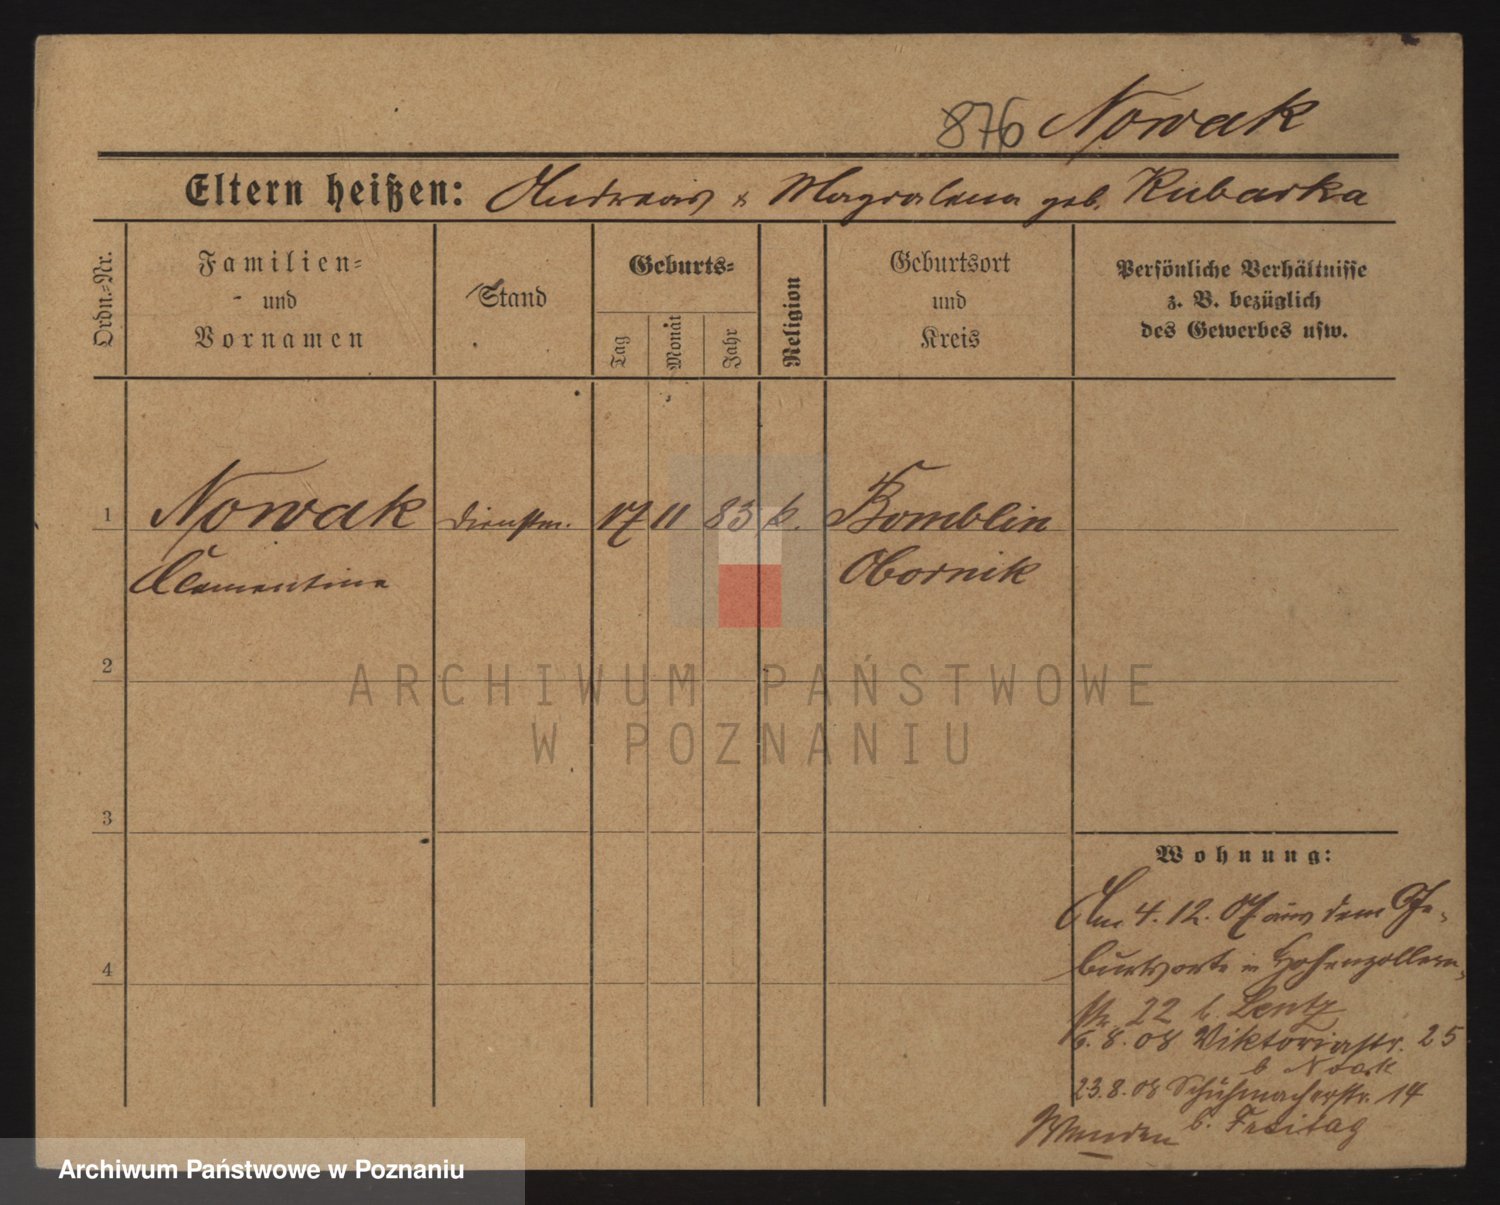 876 Nowak
Eltern heißen: Andreas & Magdalena geb. Kubacka
Ordn.-Nr.
Familien-
und
Vornamen
Stand
Geburts-
Tag
Monat
Jahr
Religion
Geburtsort
und
Kreis
Persönliche Verhältnisse
z. B. bezüglich
des Gewerbes usw.
1 Nowak Dienstm. 17 11 83 k. Bomblin
Clementine Obornik
2
3
4
Wohnung:
Am 4. 12. 07 aus dem Ge-
burtsorte in Hohenzollern-
str. 22 b. Lentz
6. 8. 08 Viktoriastr. 25
b Noak
23. 8. 08 Schuhmacherstr. 14
b. Freitag
Wenden
ARCHIWUM PAŃSTWOWE
W POZNANIU
Archiwum Państwowe w Poznaniu